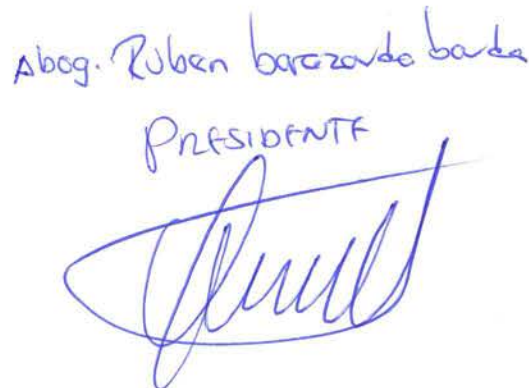 Abog. Ruben barazorda borda
PRESIDENTE